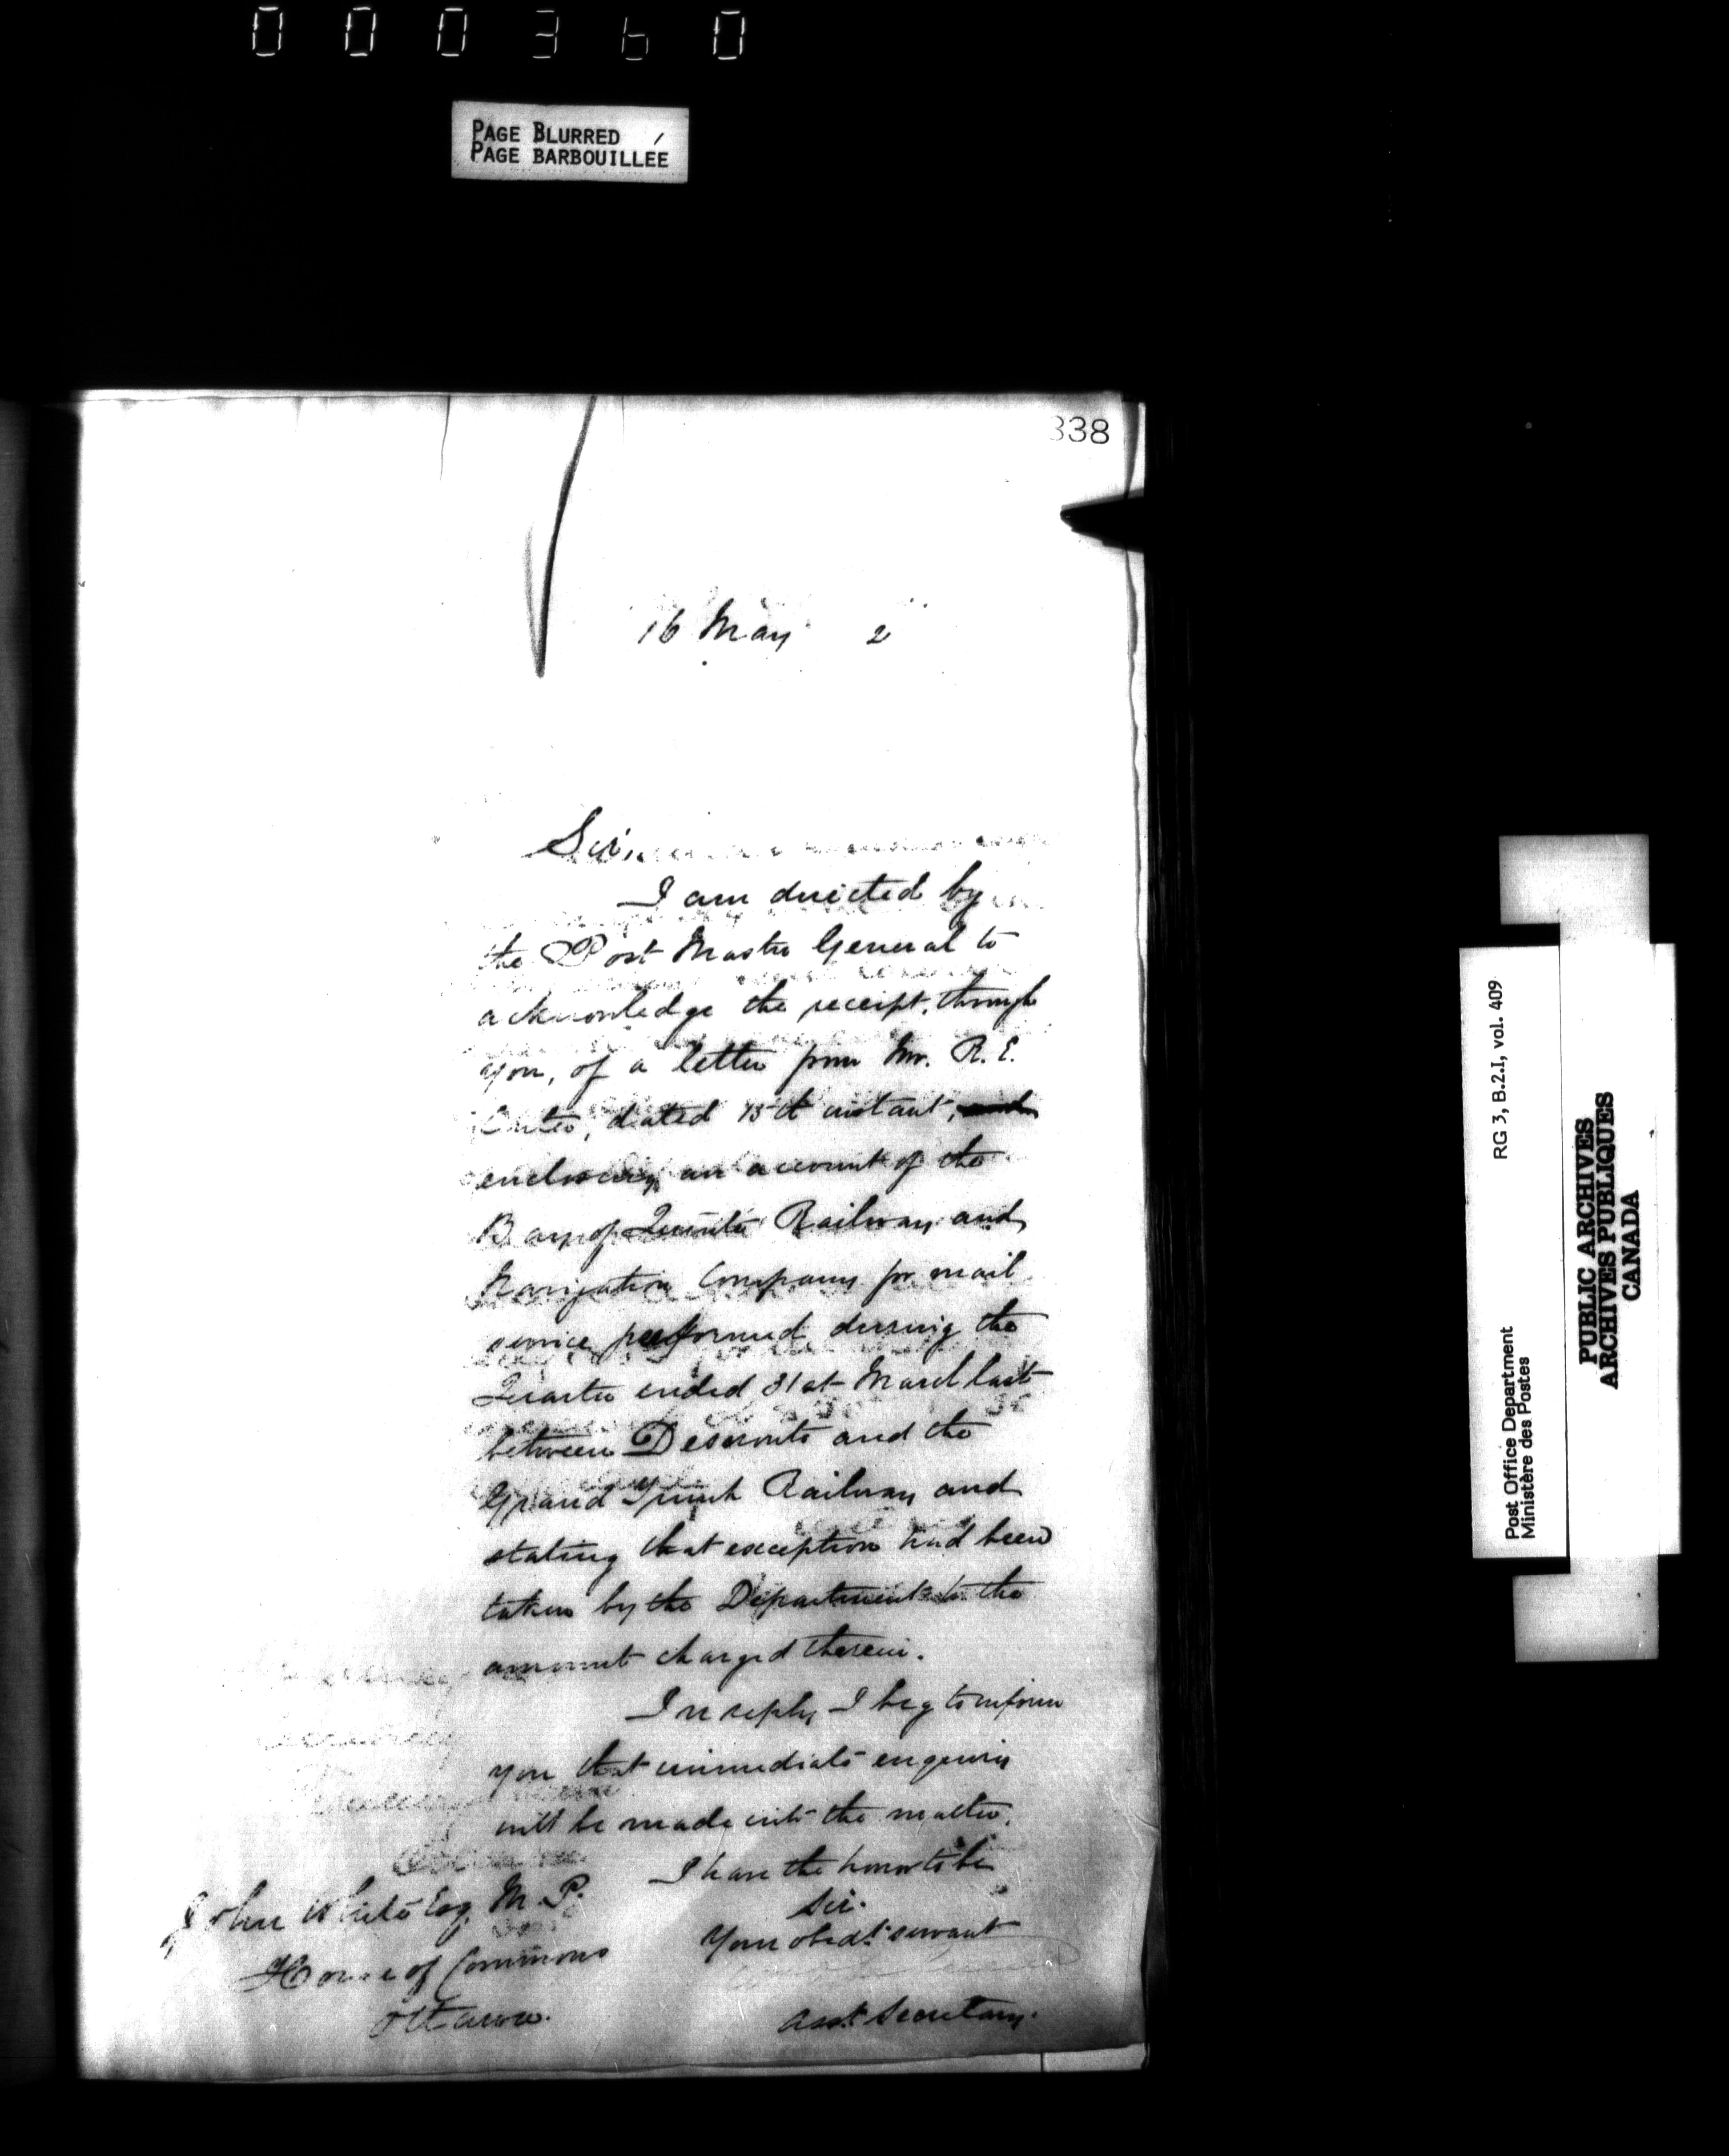 000360
PAGE BLURRED
PAGE BARBOUILLÉE
338
16 May 2
Sir,
I am directed by
the Post Master General to
acknowledge the receipt, through
you, of a letter from Mr. R. E.
dated 15th instant, and
enclosing an account of the
Bay of Quinté Railway and
Navigation Company for mail
service performed during the
Quarter ended 31st March last
between Deseronto and the
Grand Trunk Railway and
stating that exception had been
taken by the Department to the
amount charged therein.
In reply I beg to inform
you that immediate enquiry
will be made into the matter.
I have the honor to be
Sir.
Your obedt. servant
Asst. Secretary.
John White Esq. M.P.
House of Commons
Ottawa.
RG 3, B.2.I, vol. 409
Post Office Department
Ministère des Postes
PUBLIC ARCHIVES
ARCHIVES PUBLIQUES
CANADA